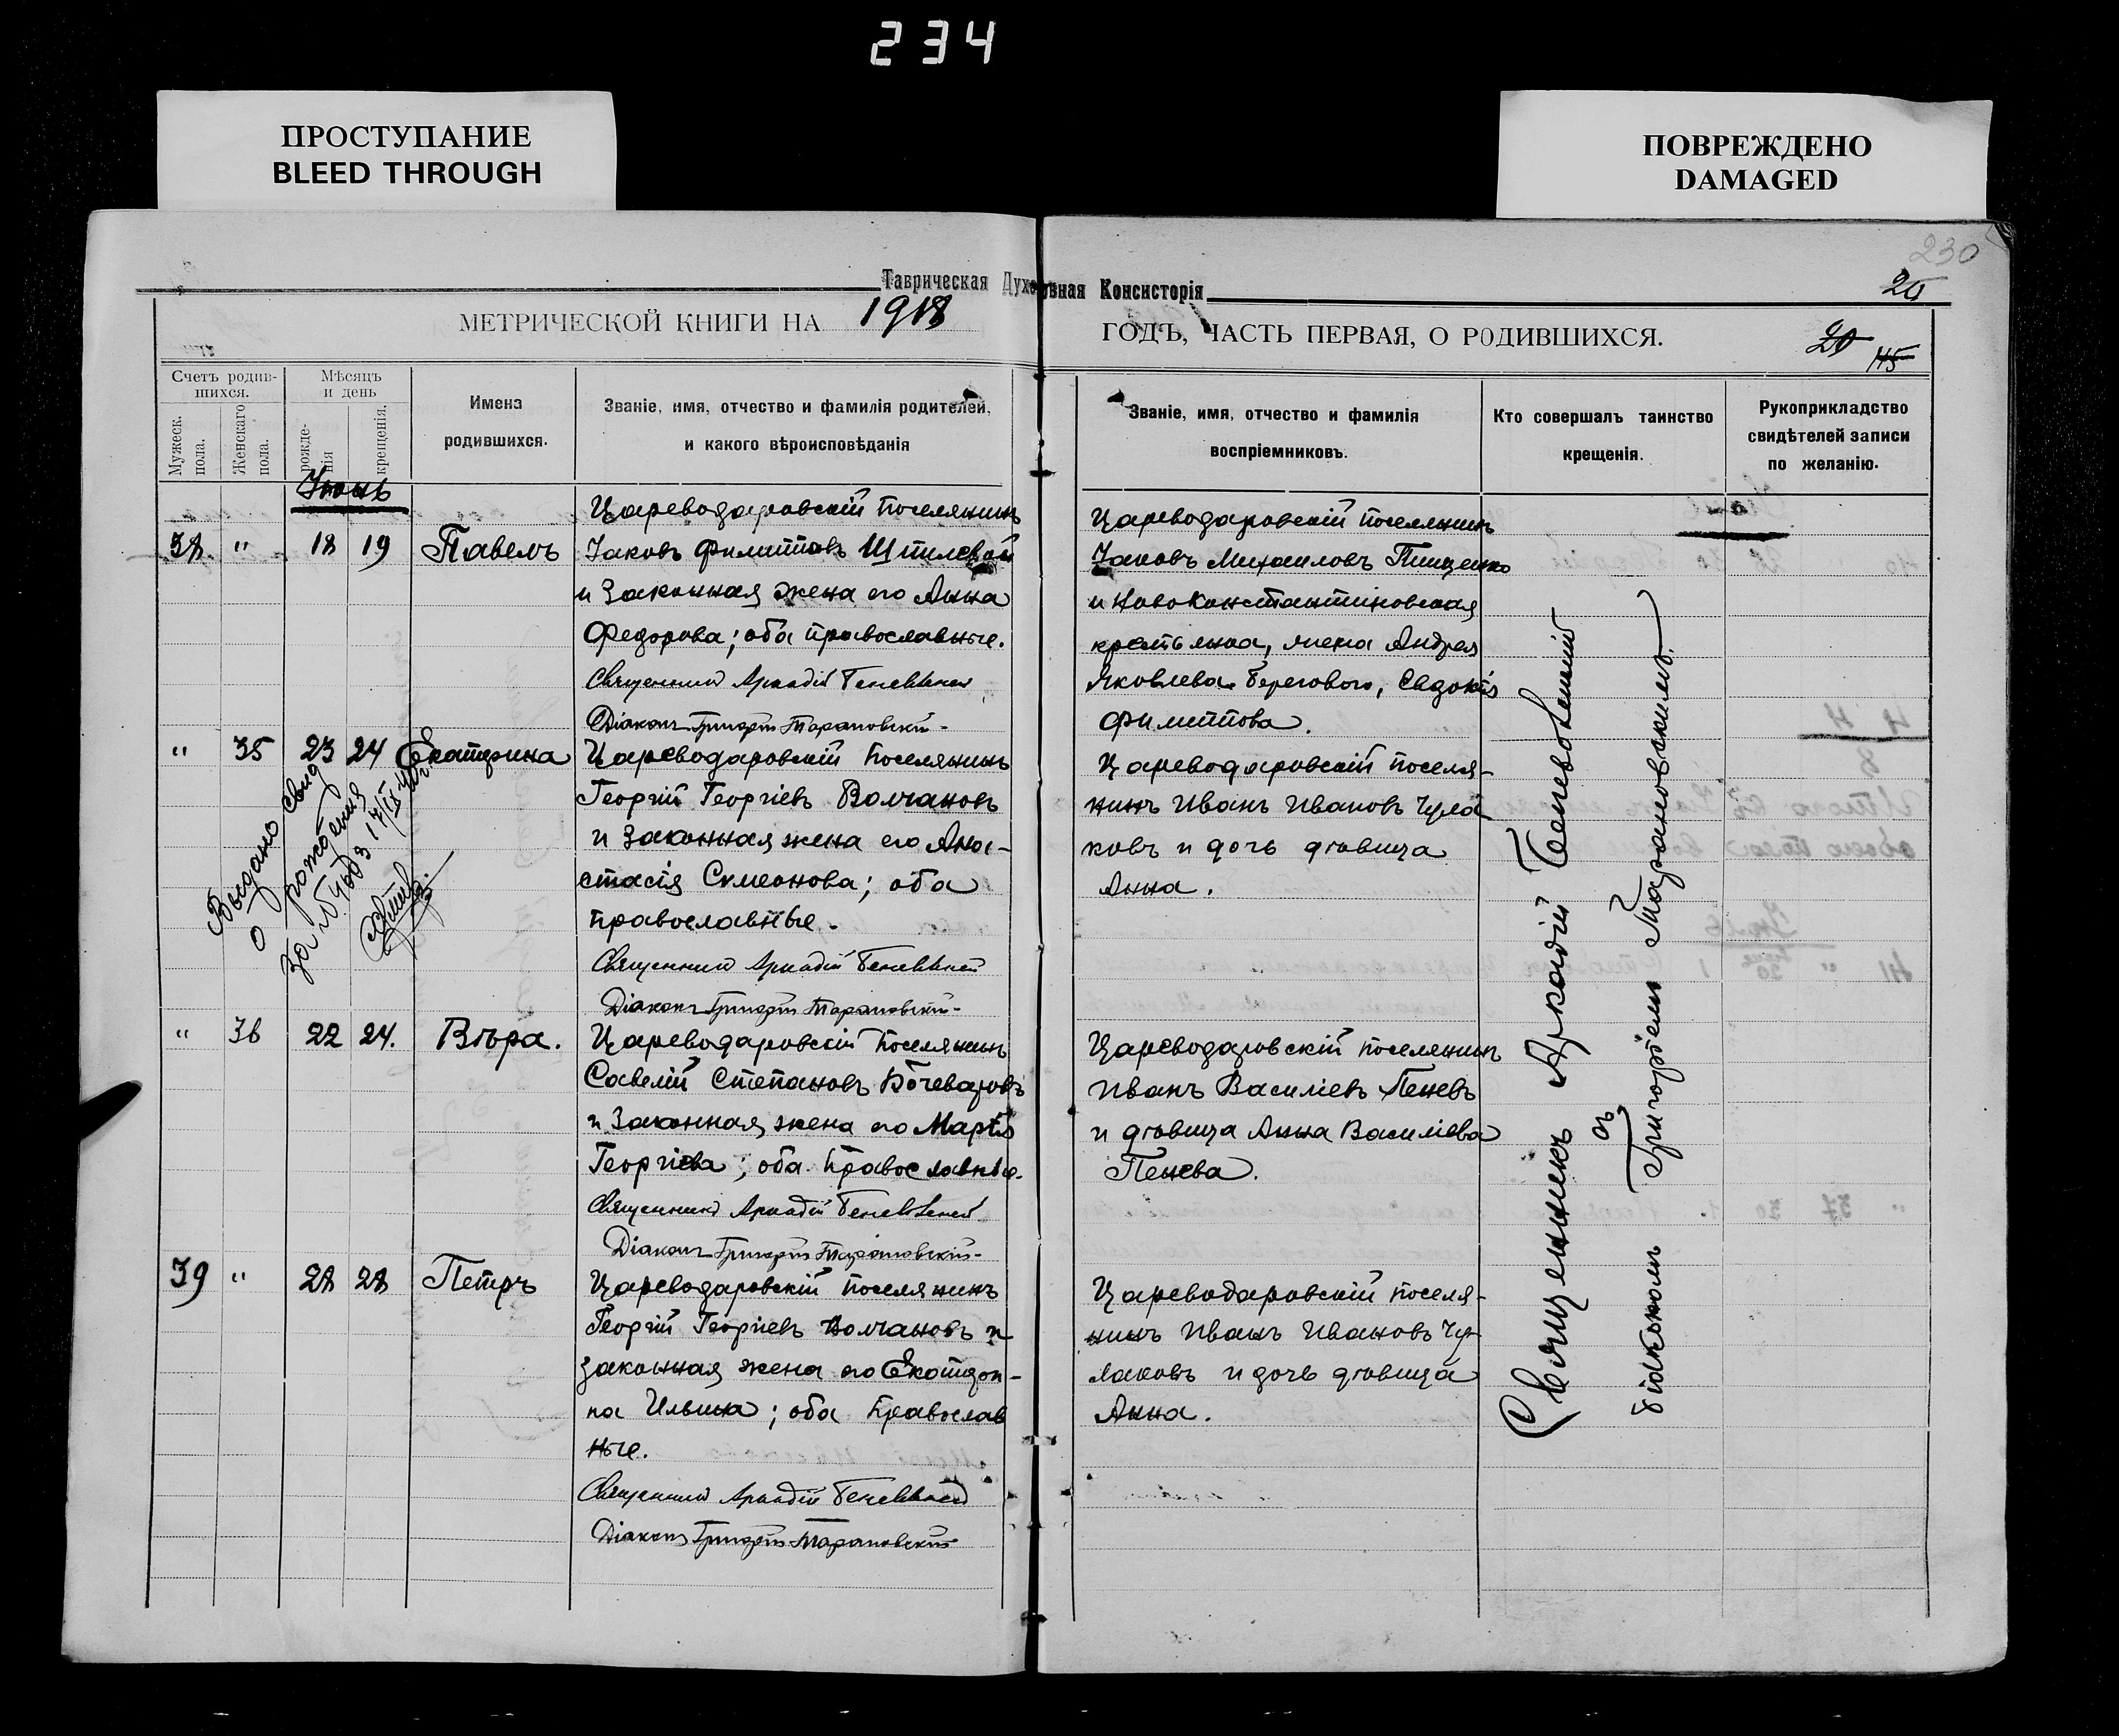 234
ПРОСТУПАНИЕ
BLEED THROUGH
ПОВРЕЖДЕНО
DAMAGED
230
Таврическая Духовная Консисторія
20
МЕТРИЧЕСКОЙ КНИГИ НА 1918
ГОДЪ, ЧАСТЬ ПЕРВАЯ, О РОДИВШИХСЯ.
20
145
Счетъ родив-
шихся.
Мужеск.
пола.
Женскаго
пола.
Мѣсяцъ
и день
рожде-
нія
крещенія.
Имена
родившихся.
Званіе, имя, отчество и фамилія родителей,
и какого вѣроисповѣданія
Званіе, имя, отчество и фамилія
воспріемниковъ.
Кто совершалъ таинство
крещенія.
Рукоприкладство
свидѣтелей записи
по желанію.
Іюнь
38. " 18 19 Павелъ
Цареводаровскій поселянинъ
Іаковъ Филипповъ Шпилевой
и законная жена его Анна
Федорова; оба православные.
Священникъ Аркадій
Діаконъ Григорій Тарановскій
Цареводаровскій поселянинъ
Іаковъ Михаиловъ Пищенко
и Новоконстантиновская
крестьянка, жена Андрея
Яковлева Берегового, Евдокія
Филиппова.
" 35 23 24 Екатерина
Цареводаровскій поселянинъ
Георгій Георгіевъ Волчановъ
и законная жена его Ана-
стасія Симеонова; оба
православные.
Священникъ Аркадій
Діаконъ Григорій Тарановскій
Цареводаровскій поселя-
нинъ Иванъ Ивановъ Чула
ковъ и дочь дѣвица
Анна.
Выдано свид
о рождения
за
" 36 22 24. Вѣра.
Цареводаровскій поселянинъ
Савелій Степановъ Бочеваровъ
и законная жена его Марѳа
Георгіева; оба православные.
Священникъ Аркадій
Діаконъ Григорій Тарановскій
Цареводаровскій поселянинъ
Иванъ Василіевъ Пеневъ
и дѣвица Анна Василіева
Пенева.
39 " 28 28 Петръ
Цареводаровскій поселянинъ
Георгій Георгіевъ Волчановъ и
законная жена его Екатери-
на Ильина; оба православ
ные.
Священникъ Аркадій
Діаконъ Григорій Тарановскій
Цареводаровскій поселя-
нинъ Иванъ Ивановъ Чу-
лаковъ и дочь дѣвица
Анна.
Священникъ Аркадій
съ
діакономъ Григоріемъ Тарановскимъ.